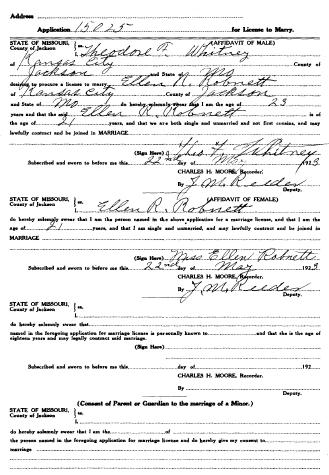 Address
Application 15025 for License to Marry.
STATE OF MISSOURI, County of Jackson } ss. (AFFIDAVIT OF MALE)
I, Theodore F. Whitney
of Kansas City County of
Jackson and State of Mo
desiring to procure a license to marry Ellen R. Robnett
of Kansas City County of Jackson
and State of Mo do hereby solemnly swear that I am the age of 23
years and that the said Ellen R. Robnett is of
the age of 21 years, and that we are both single and unmarried and not first cousins, and may
lawfully contract and be joined in MARRIAGE
(Sign Here) Theo F. Whitney
Subscribed and sworn to before me this 22nd day of May 1923
CHARLES H. MOORE, Recorder.
By J M Reeder
Deputy.
STATE OF MISSOURI, County of Jackson } ss. (AFFIDAVIT OF FEMALE)
I, Ellen R. Robnett
do hereby solemnly swear that I am the person named in the above application for a marriage license, and that I am the
age of 21 years, and that I am single and unmarried, and may lawfully contract and be joined in
MARRIAGE
(Sign Here) Miss Ellen Robnett
Subscribed and sworn to before me this 22nd day of May 1923
CHARLES H. MOORE, Recorder.
By J. M. Reeder
Deputy.
STATE OF MISSOURI, County of Jackson } ss.
I,
do hereby solemnly swear that
named in the foregoing application for marriage license is personally known to and that she is the age of
eighteen years and may legally contract said marriage.
(Sign Here)
Subscribed and sworn to before me this day of 192
CHARLES H. MOORE, Recorder.
By
Deputy.
(Consent of Parent or Guardian to the marriage of a Minor.)
STATE OF MISSOURI, County of Jackson } ss.
I,
do hereby solemnly swear that I am the of
the person named in the foregoing application for marriage license and do hereby give my consent to
marriage